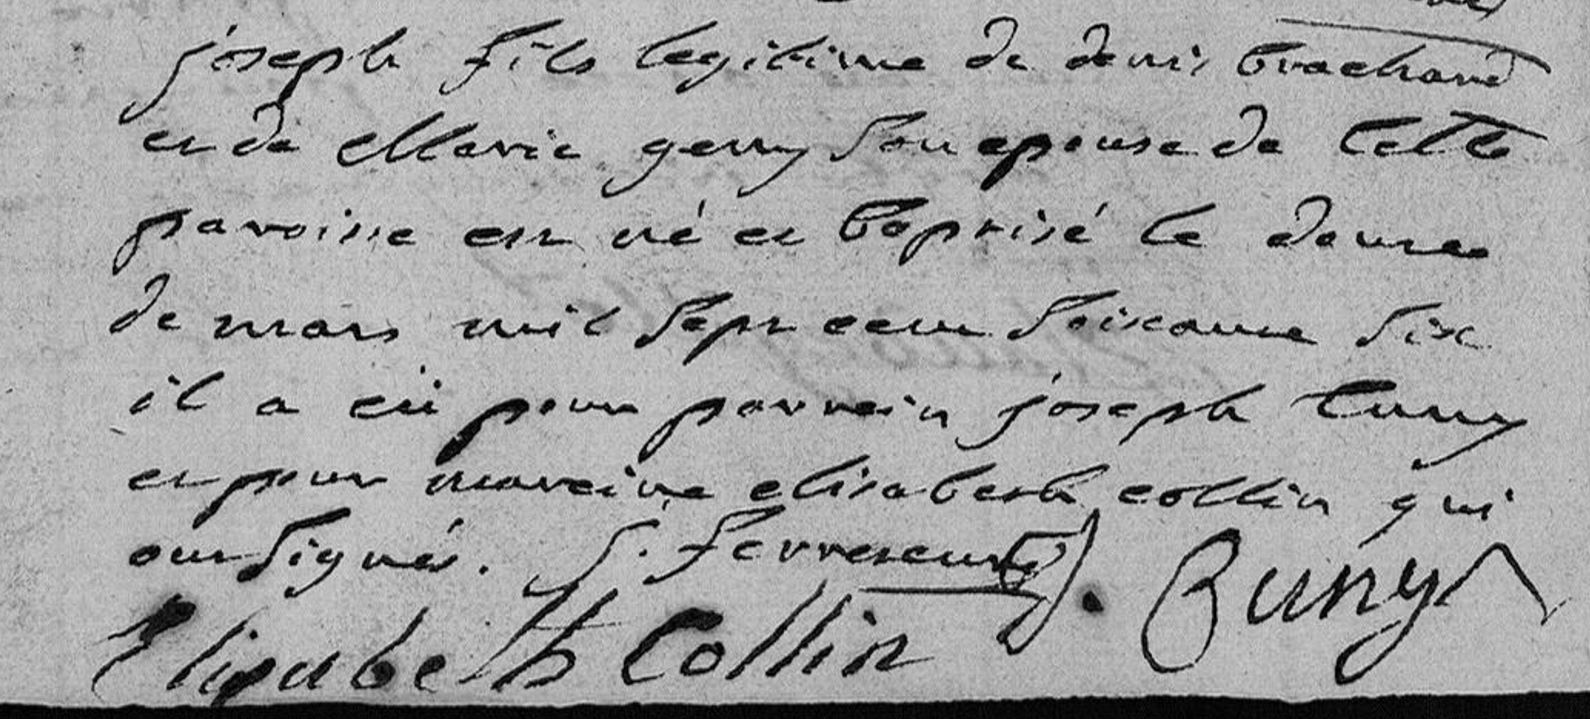 joseph fils legitime de denis brachand
et de Marie geny son epouse de cette
paroisse est né et baptisé le douze
de mars mil sept cent soixante six
il a eü pour parrein joseph Cuny
et pour mareine elisabeth collin qui
ont signés. J.
Elizabeth Collin